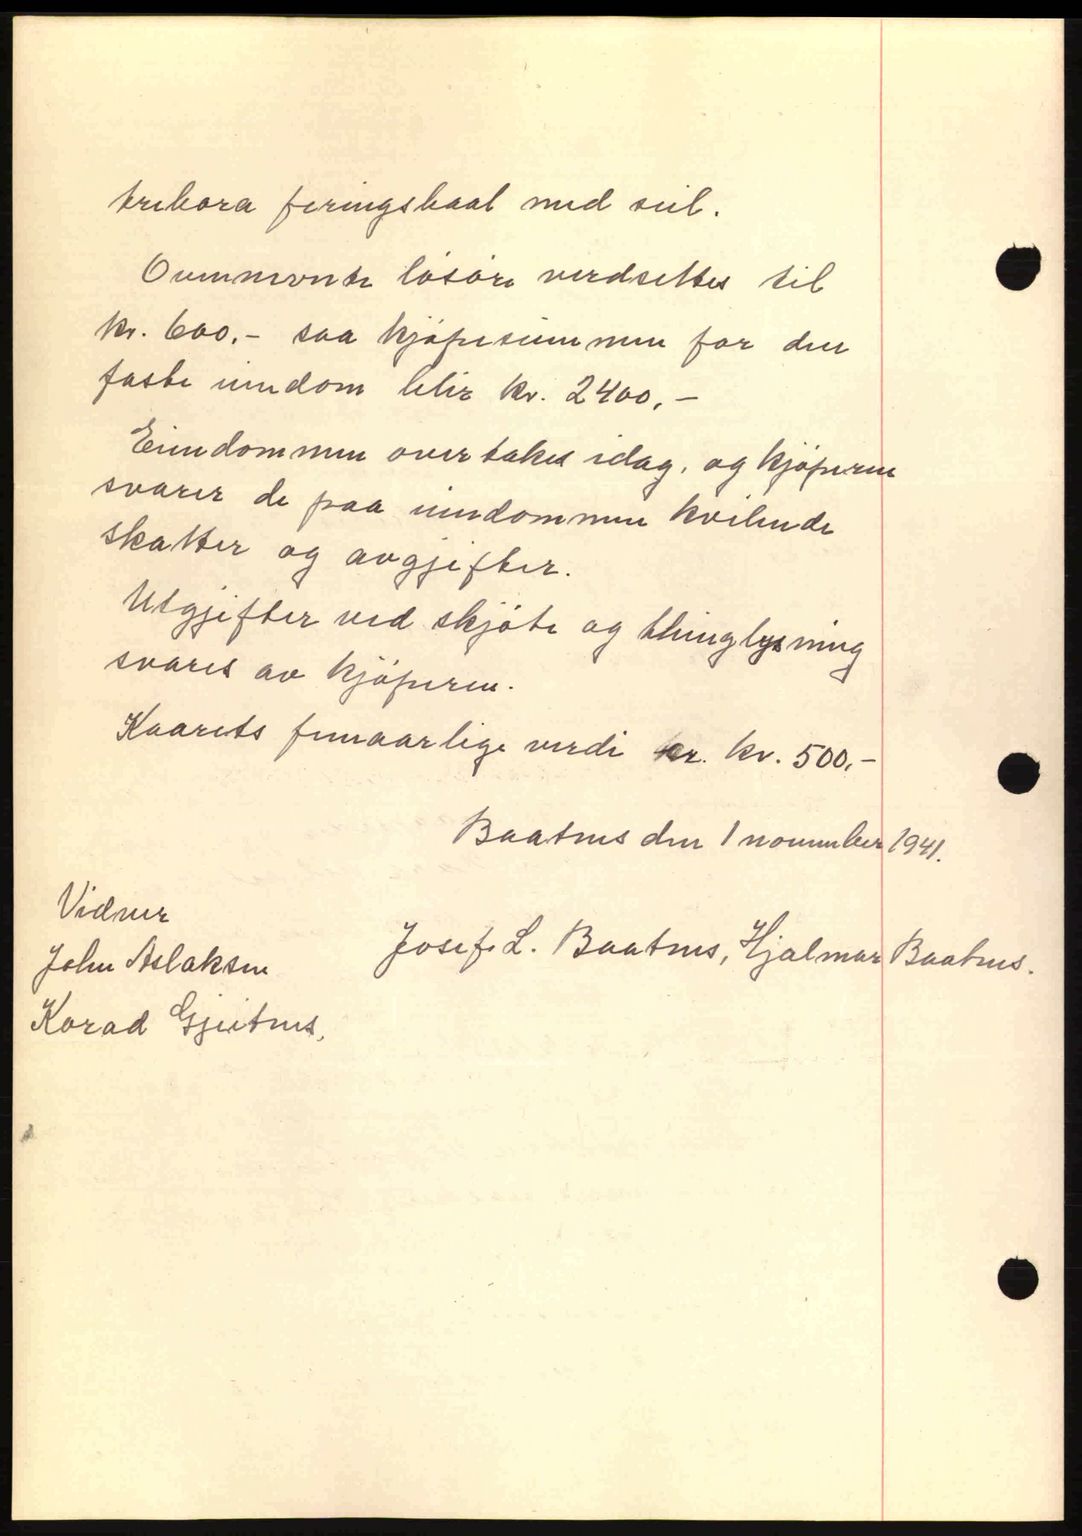 trebora feringsbaat med seil.
Ovennevnte lösöre verdsettes til
kr. 600.- saa kjöpesummen for den
faste eiendom blir kr. 2400,-
Eiendommen overtakes idag, og kjöperen
svarer de paa eiendommen hvilende
skatter og avgjifter.
Utgjifter ved skjöte og thinglysning
svares av kjöperen.
Kaarets femaarlige verdi er. kr. 500,-
Baatnes den 1 november 1941.
Vidner
John Aslaksen
Korad Gjeitnes.
Josef L. Baatnes, Hjalmar Baatnes.